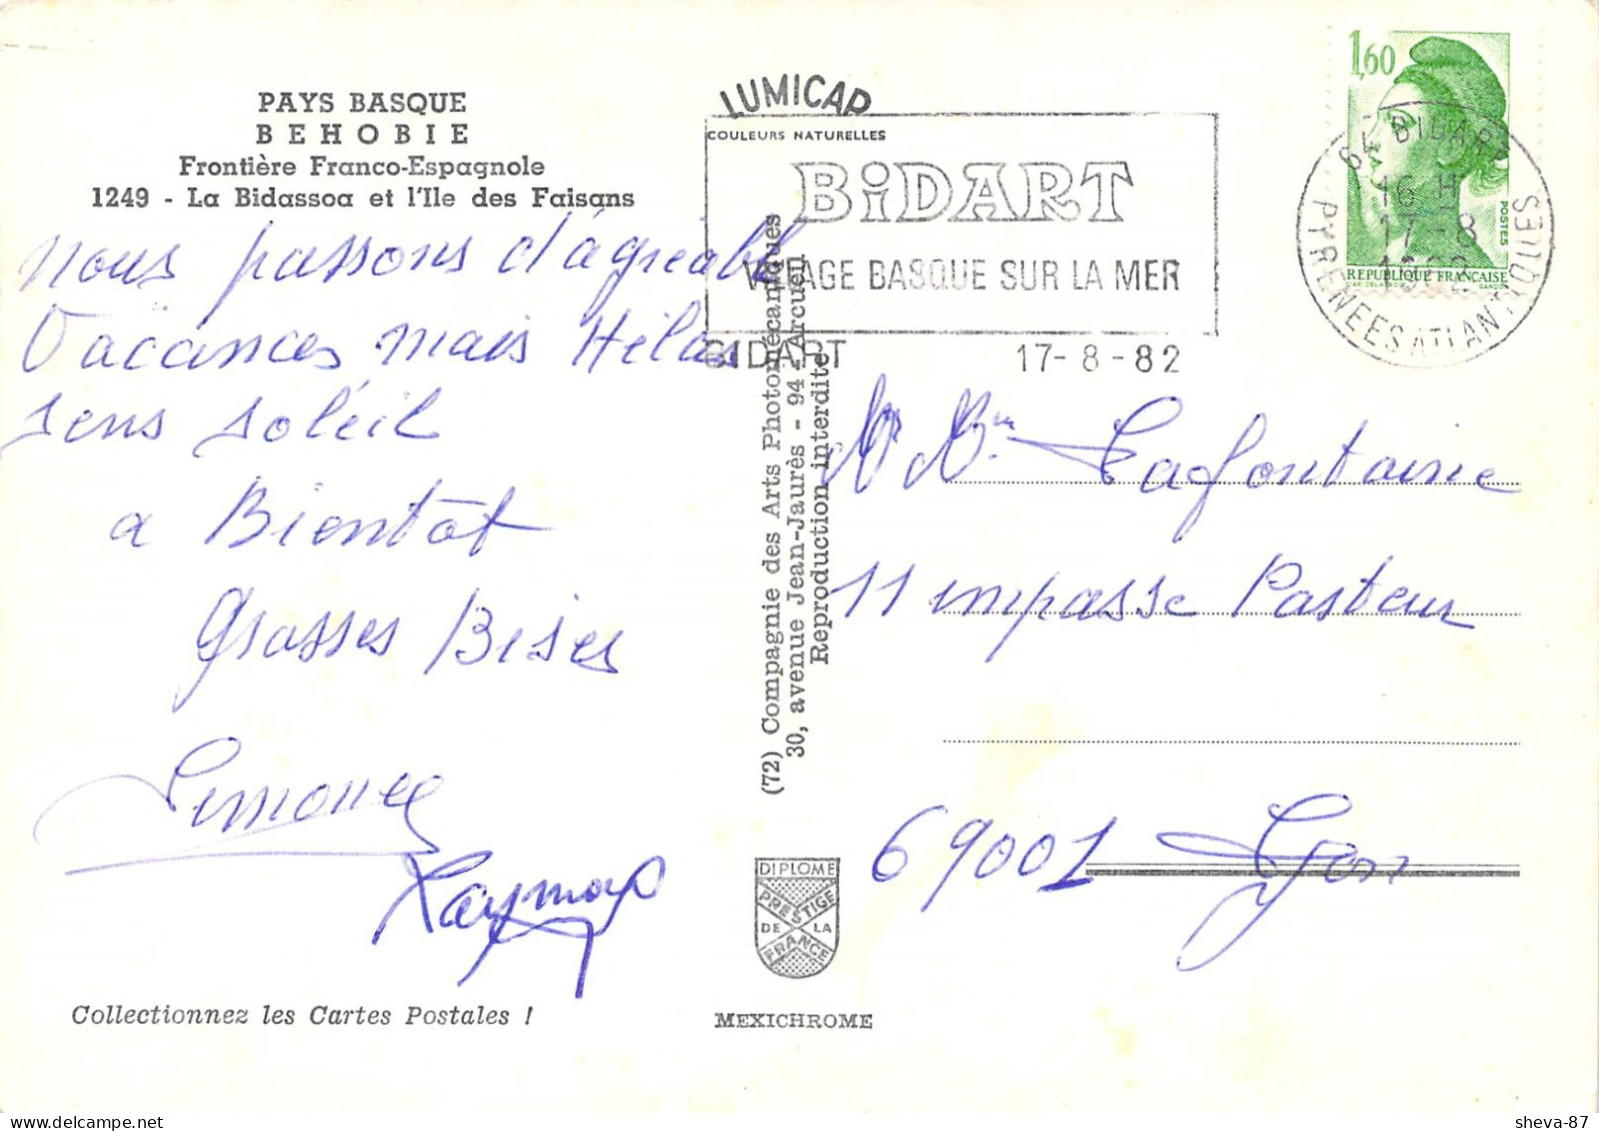 PAYS BASQUE
BEHOBIE
Frontière Franco-Espagnole
1249 - La Bidassoa et l'Ile des Faisans
nous passons d'agréable
Vacances mais Hélas
sens soléil
a Bientôt
Grosses Bises
Simone
Collectionnez les Cartes Postales !
LUMICAP
COULEURS NATURELLES
BiDART
VILLAGE BASQUE SUR LA MER
BIDART 17-8-82
(72) Compagnie des Arts Photomécaniques
30, avenue Jean-Jaurès - 94 - Arcueil
Reproduction interdite
DIPLOME
PRESTIGE
DE LA
FRANCE
MEXICHROME
1,60
POSTES
REPUBLIQUE FRANÇAISE
64 BIDART
16 H
17-8
1982
PYRENEES ATLANTIQUES
Lafontaine
11 impasse Pasteur
69001 Lyon
sheva-87